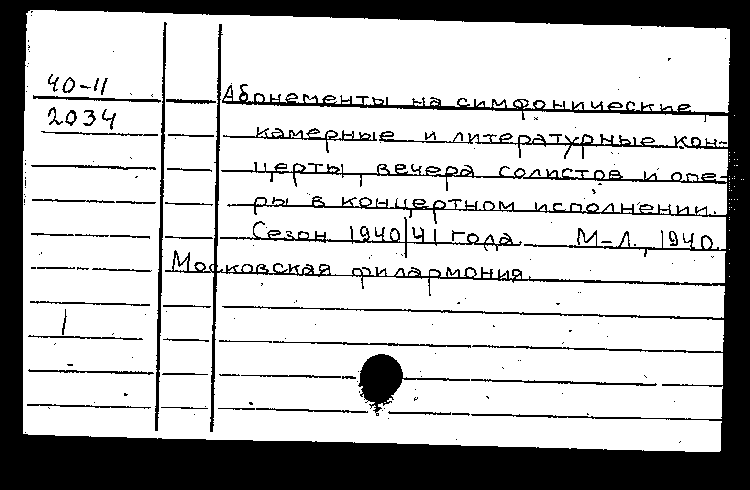 40-11
2034
Абонементы на симфонические,
камерные и литературные кон-
церты, вечера солистов и опе-
ры в концертном исполнении.
Сезон 1940/41 года. М-Л., 1940.
Московская филармония.
1